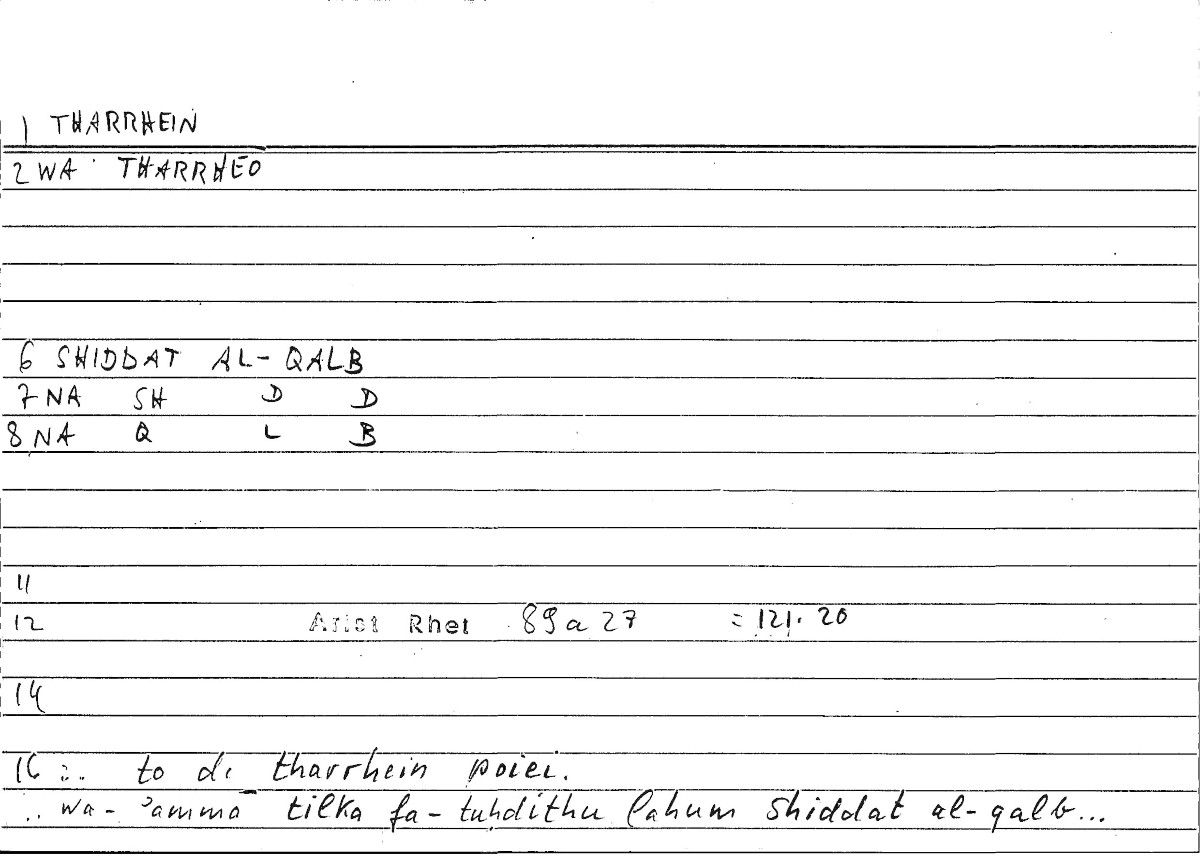 1 THARRHEIN
2 WA THARRHEO
6 SHIDDAT AL-QALB
7 NA SH D D
8 NA Q L B
11
12 Arist Rhet 89a27 = 121.20
14
16 :. to de tharrhein poiei.
.. wa-ʾammā tilka fa-tuḥdithu lahum shiddat al-qalb...